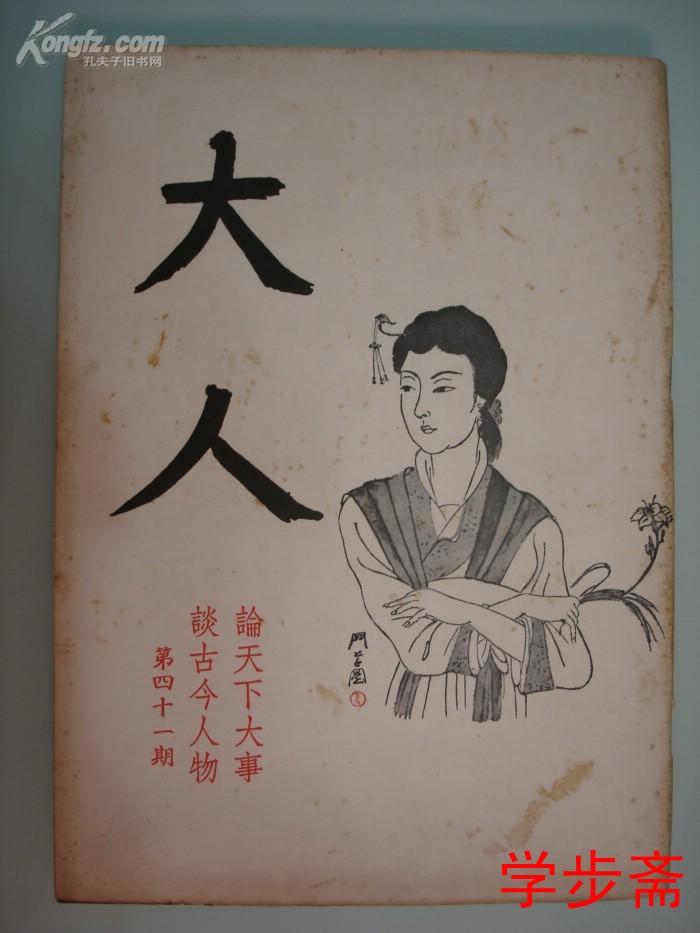 Kongfz.com
孔夫子旧书网
大人
論天下大事
談古今人物
第四十一期
鬥草圖
学步斋